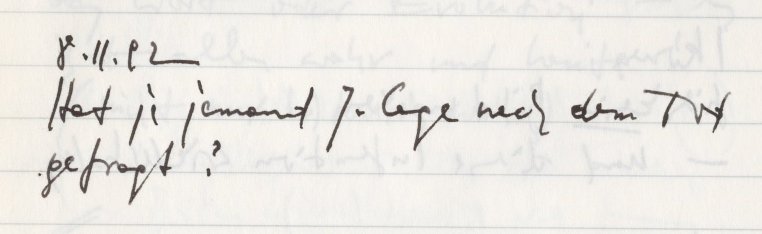 8.11.92
Hat je jemand J. Cage nach dem Tod
gefragt?